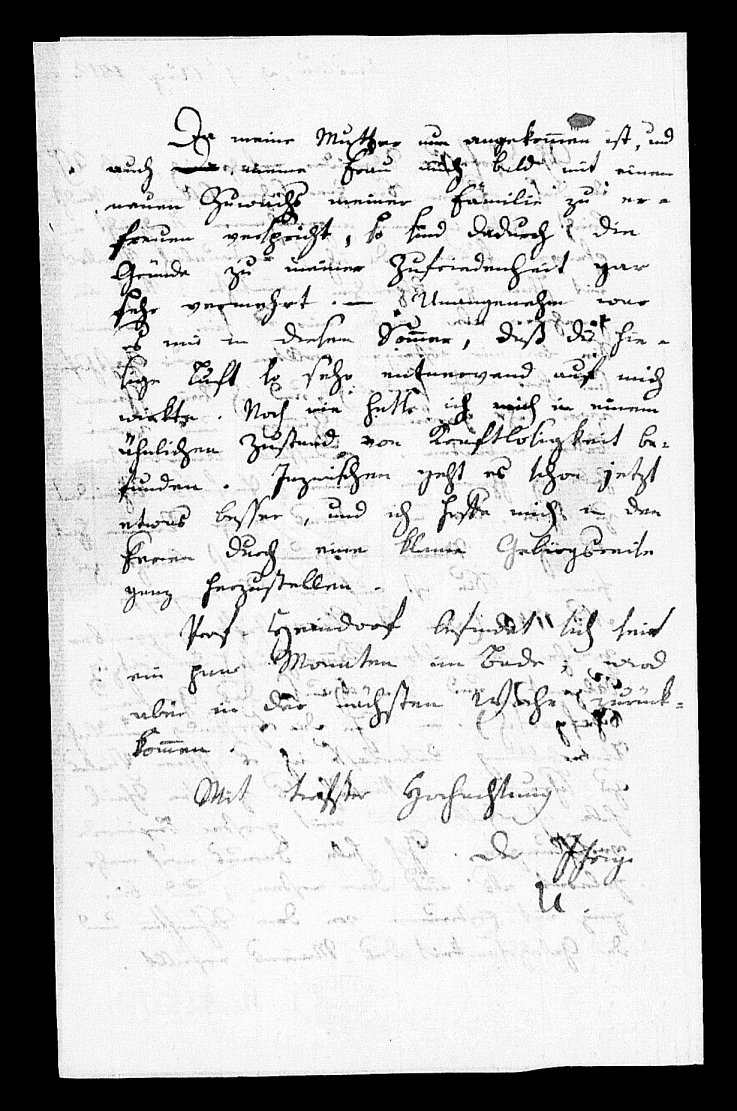 Da meine Mutter nun angekommen ist, und
auch meine Frau mich bald mit einem
neuen Zuwachs meiner Familie zu er-
freuen verspricht, so sind dadurch die
Gründe zu meiner Zufriedenheit gar
sehr vermehrt. — Unangenehm war
es mir in diesem Sommer, daß die hie-
sige Luft so sehr entnervend auf mich
wirkte. Noch nie hatte ich mich in einem
ähnlichen Zustand von Kraftlosigkeit be-
funden. Inzwischen geht es schon jetzt
etwas besser, und ich hoffe mich in den
Ferien durch eine kleine Gebirgsreise
ganz herzustellen.
Prof. befindet sich seit
ein paar Monaten im Bade, wird
aber in der nächsten Woche zurück-
kommen.
Mit tiefster Hochachtung
Der Ihrige
U